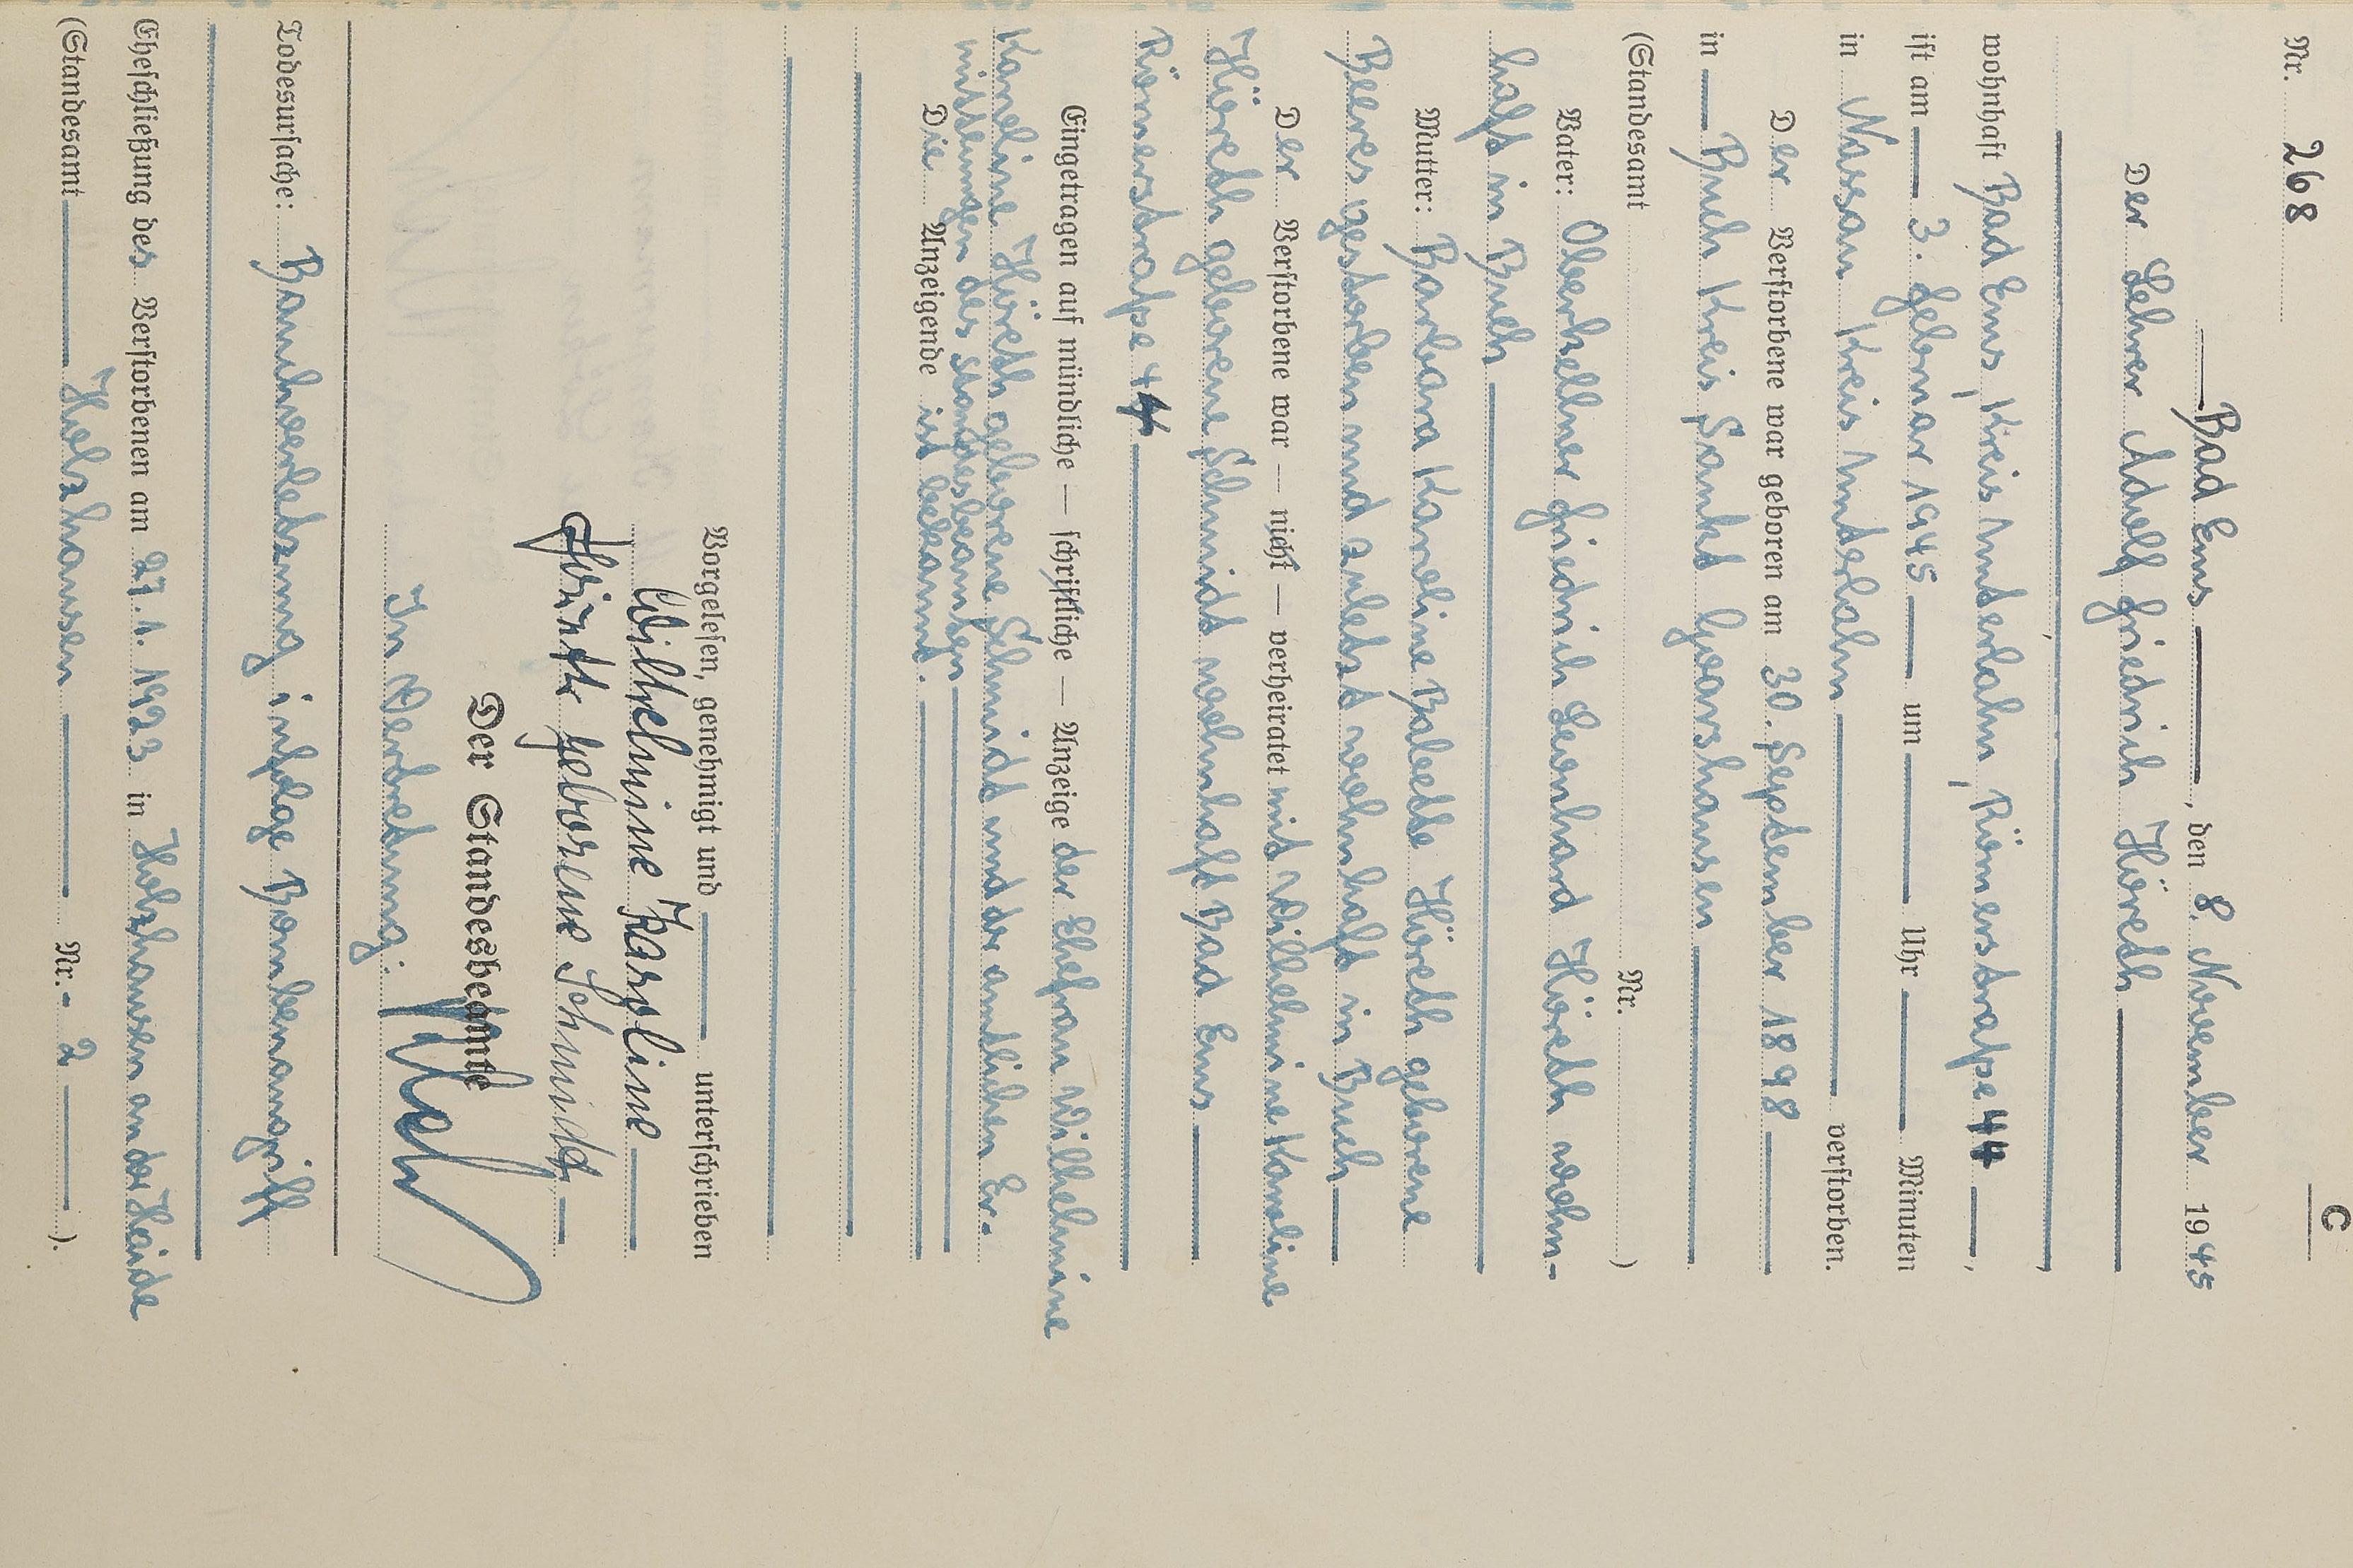 C
Nr. 268
Bad Ems, den 8. November 1945
Der Lehrer Adolf Friedrich Hörcth
wohnhaft Bad Ems, Kreis Unterlahn, Römerstraße 44,
ist am 3. Februar 1945 um Uhr Minuten
in Nassau Kreis Unterlahn verstorben.
Der Verstorbene war geboren am 30. September 1898
in Buch Kreis Sankt Goarshausen
(Standesamt Nr. )
Vater: Oberkellner Friedrich Leonhard wohn-
haft in Buch
Mutter: Barbara Karoline geborene
Beeres gestorben und zuletzt wohnhaft in Buch
Der Verstorbene war — nicht — verheiratet mit Wilhelmine Karoline
geborene Schmidt wohnhaft Bad Ems
Römerstraße 44
Eingetragen auf mündliche — schriftliche — Anzeige der Ehefrau Wilhelmine
Karoline geborene Schmidt und der amtlichen Er-
mittlungen des Standesbeamten
Die Anzeigende ist bekannt.
Vorgelesen, genehmigt und unterschrieben
Wilhelmine Karoline
geborene Schmidt
Der Standesbeamte
In Vertretung:
Todesursache: Bauchverletzung infolge Bombenangriff
Eheschließung des Verstorbenen am 27. 1. 1923 in Holzhausen an der Haide
(Standesamt Holzhausen Nr. 2 ).